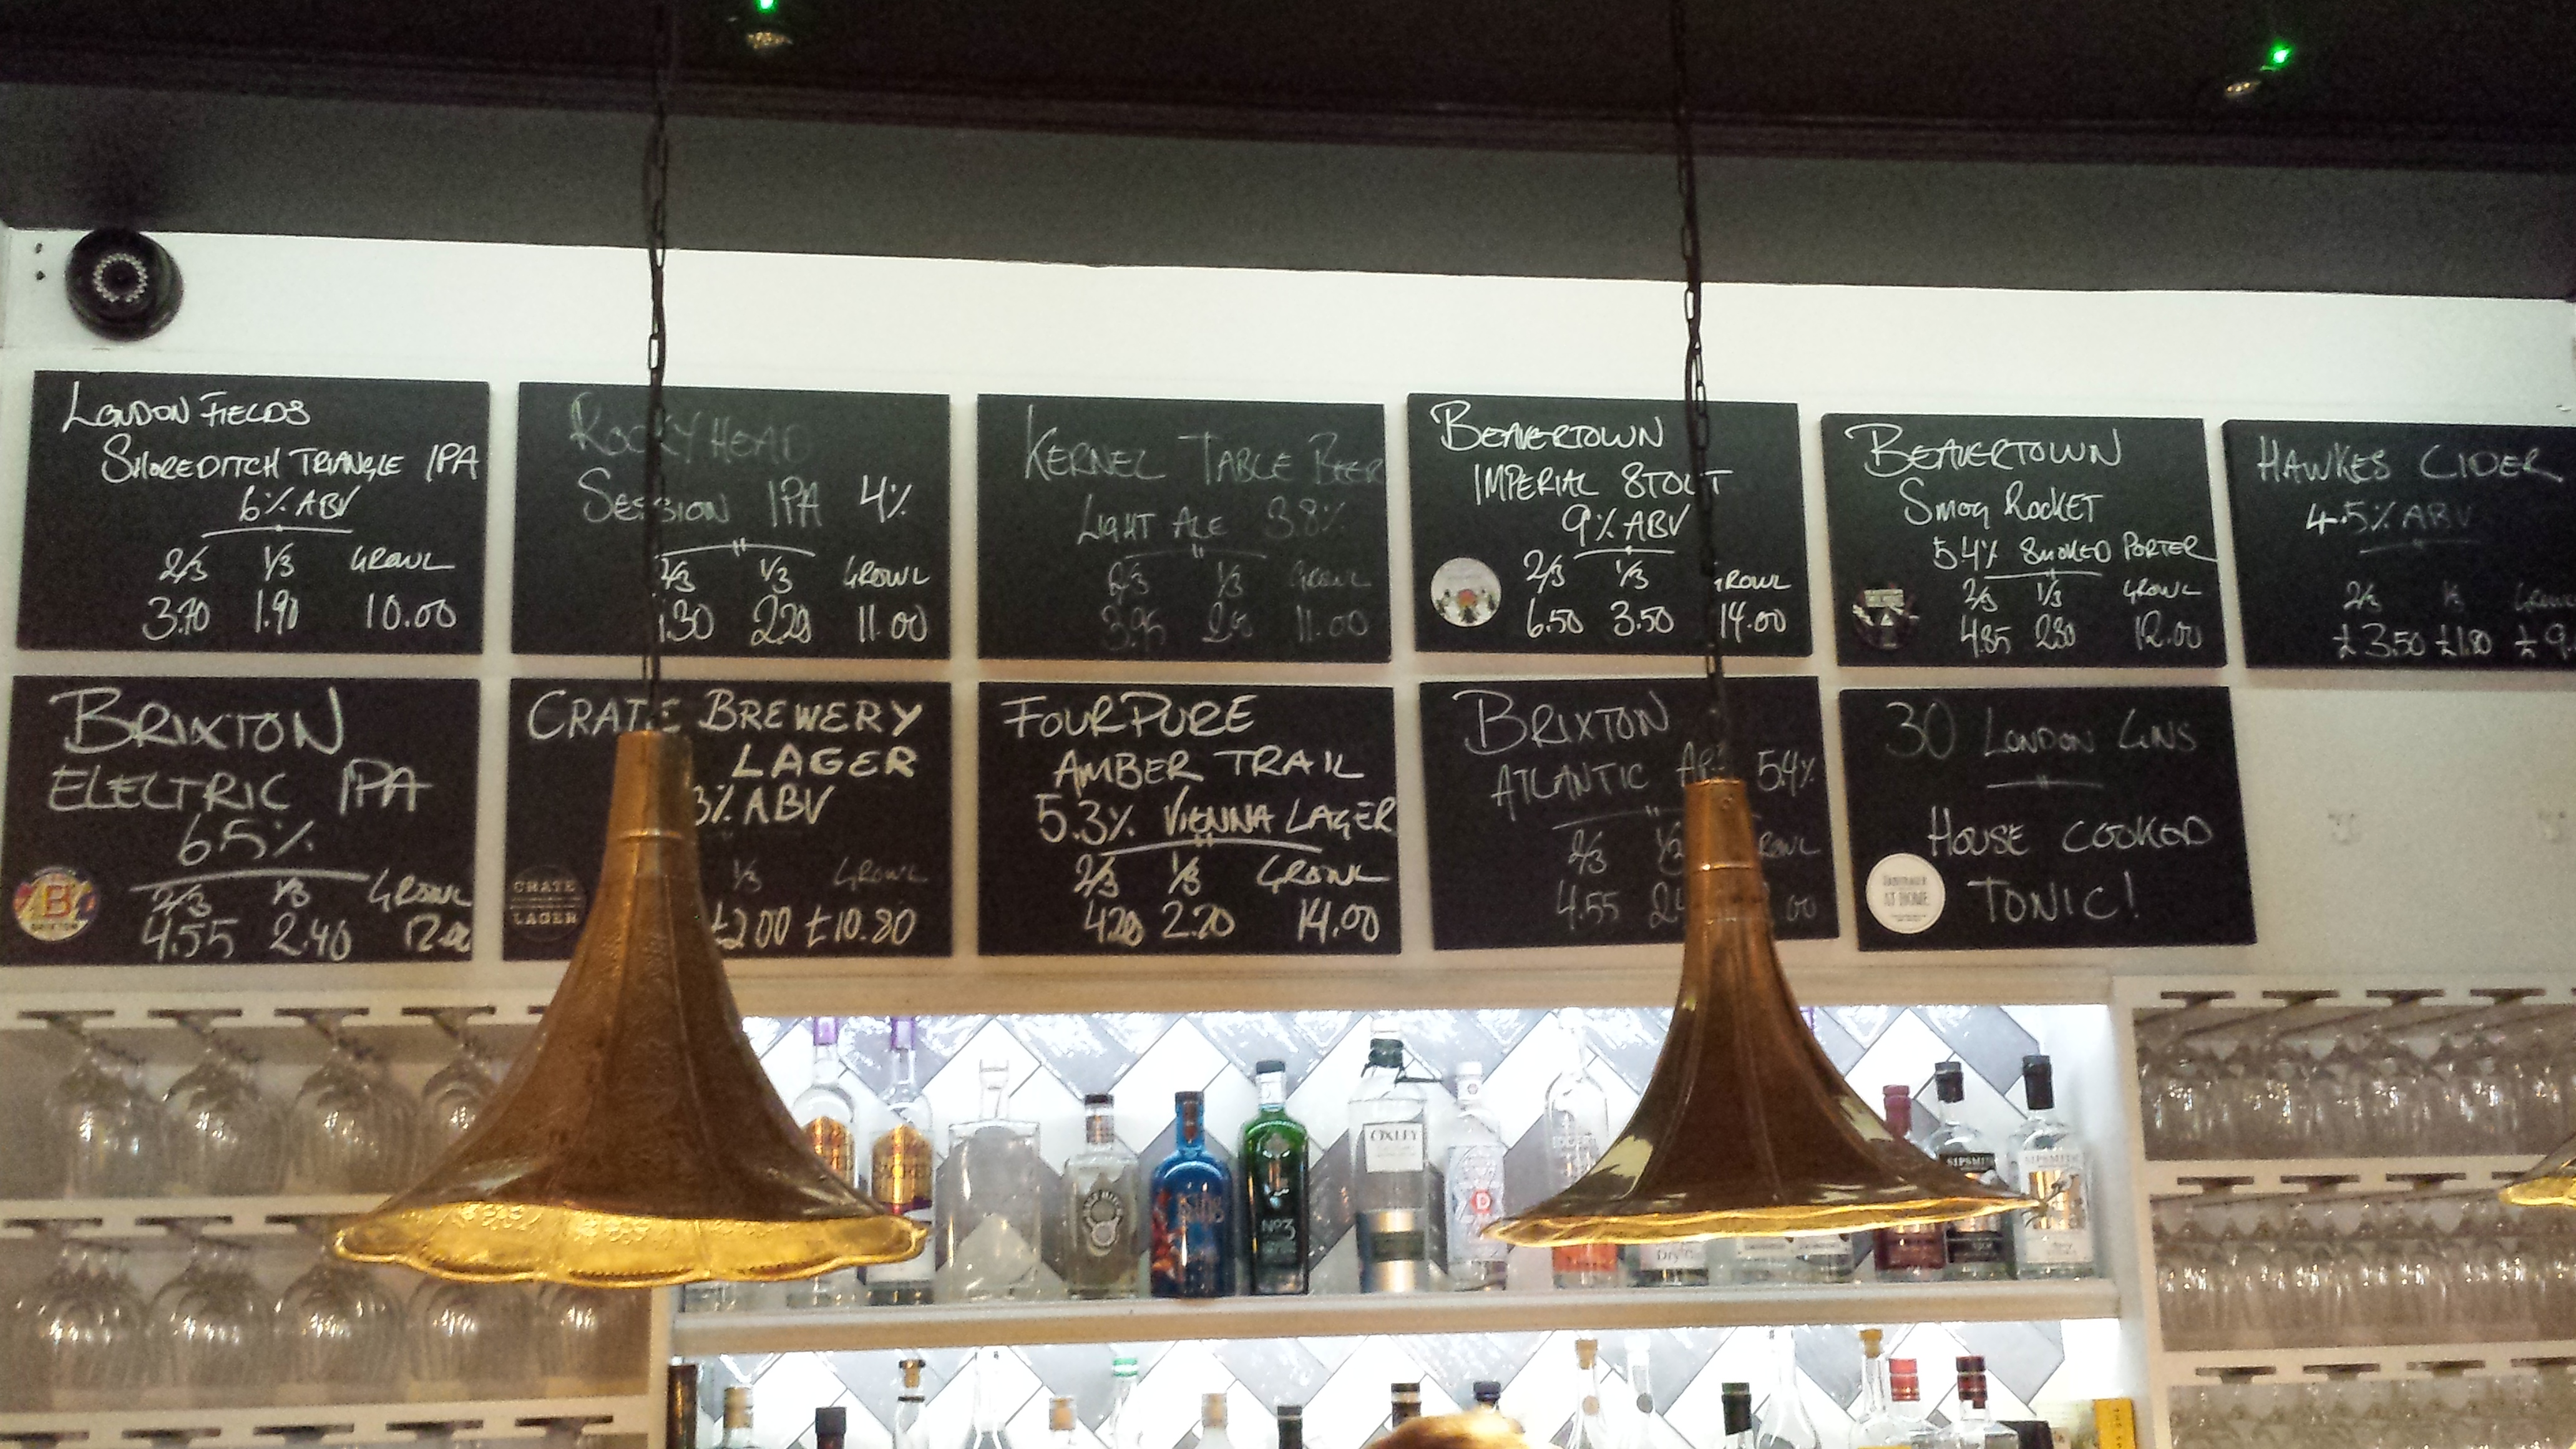 LONDON FIELDS
SHOREDITCH TRIANGLE IPA
6% ABV
2/3 1/3 GROWL
3.70 1.90 10.00
ROCKY HEAD
SESSION IPA 4%
2/3 1/3 GROWL
.30 2.20 11.00
KERNEL TABLE BEER
LIGHT ALE 3.8%
2/3 1/3 GROWL
3.95 11.00
BEAVERTOWN
IMPERIAL STOUT
9% ABV
2/3 1/3 GROWL
6.50 3.50 14.00
BEAVERTOWN
SMOG ROCKET
5.4% SMOKED PORTER
2/3 1/3 GROWL
4.85 2.80 12.00
HAWKES CIDER
4.5% ABV
2/3 1/3
£3.50 £1.80 £9.
BRIXTON
ELECTRIC IPA
6.5%
2/3 1/3 GROWL
4.55 2.40 12.00
B
BRIXTON
CRATE BREWERY
LAGER
% ABV
1/3 GROWL
£2.00 £10.80
CRATE
LAGER
FOURPURE
AMBER TRAIL
5.3% VIENNA LAGER
2/3 1/3 GROWL
4.20 2.20 14.00
BRIXTON
ATLANTIC AP 5.4%
2/3 1/3 ROWL
4.55 .00
30 LONDON GINS
HOUSE COOKED
TONIC!
AT HOME
OXLEY
No3
D
SIPSMITH
SIPSMITH